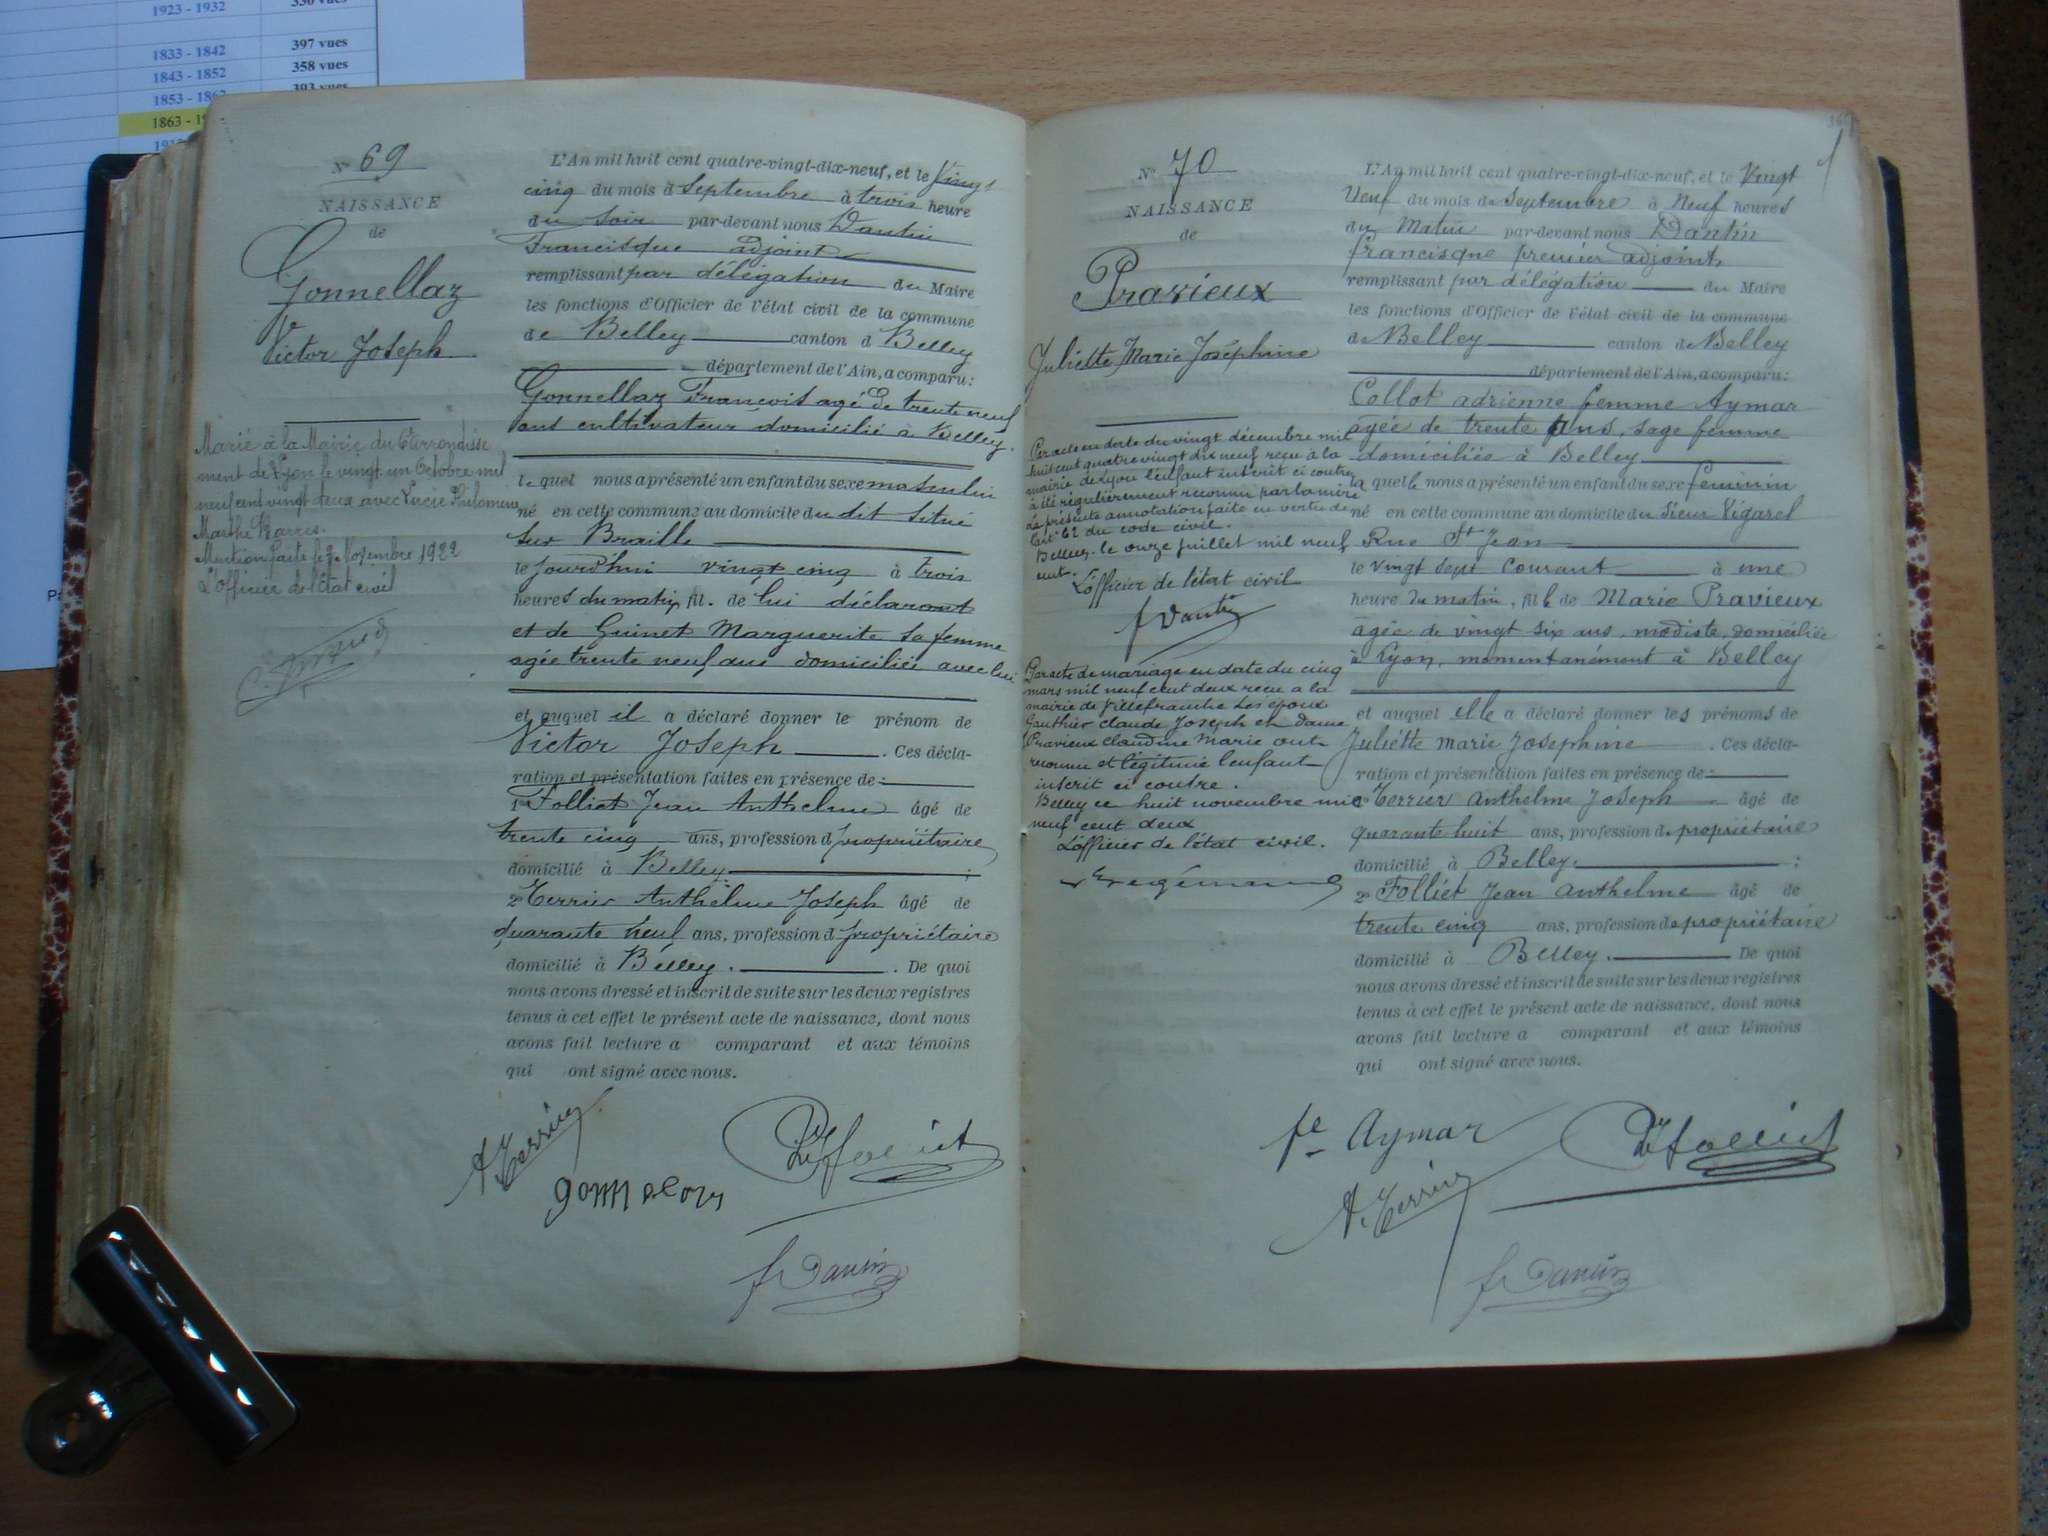 1923 - 1932 336 vues
1833 - 1842 397 vues
1843 - 1852 358 vues
1853 - 1862 393 vues
1863 - 1
N° 69
NAISSANCE
de
Gonnellaz
Victor Joseph
Marié à la Mairie du
ment de Lyon le vingt un Octobre mil
neuf cent vingt deux avec Lucie Philomène
Marthe
Mention faite le 2 Novembre 1922
L'officier de l'état civil
L'An mil huit cent quatre-vingt-dix-neuf, et le Vingt
cinq du mois d Septembre à trois heure
du soir par-devant nous Dantin
Francisque adjoint
remplissant par délégation du Maire
les fonctions d'Officier de l'état civil de la commune
de Belley canton d Belley
département de l'Ain, a comparu:
Gonnellaz François agé de trente neuf
ans cultivateur domicilié à Belley.
le quel nous a présenté un enfant du sexe masculin
né en cette commune au domicile du dit situé
sur Braille
le jourd'hui vingt cinq à trois
heures du matin, fil. de lui déclarant
et de Guinet Marguerite sa femme
agée trente neuf ans domiciliée avec lui
et auquel il a déclaré donner le prénom de
Victor Joseph . Ces décla-
ration et présentation faites en présence de:
1° Folliet Jean Anthelme âgé de
trente cinq ans, profession d propriétaire
domicilié à Belley ;
2° Terrier Anthelme Joseph âgé de
quarante neuf ans, profession d propriétaire
domicilié à Belley. . De quoi
nous avons dressé et inscrit de suite sur les deux registres
tenus à cet effet le présent acte de naissance, dont nous
avons fait lecture a comparant et aux témoins
qui ont signé avec nous.
A. Terrier
Folliet
f Dantin
N° 70
NAISSANCE
de
Pravieux
Juliette Marie Joséphine
Par acte en date du vingt décembre mil
huit cent quatre vingt dix neuf reçu à la
mairie de Lyon l'enfant inscrit ci contre
a été régulièrement reconnu par la mère
la présente annotation faite en vertu de
l'art 62 du code civil.
Belley, le onze juillet mil neuf
cent.
L'officier de l'état civil
f Dantin
Par acte de mariage en date du cinq
mars mil neuf cent deux reçu a la
mairie de Villefranche les époux
Gauthier Claude Joseph et dame
Pravieux Claudine Marie ont
reconnu et légitimé l'enfant
inscrit ci contre.
Belley ce huit novembre mil
neuf cent deux
L'officier de l'état civil.
L'An mil huit cent quatre-vingt-dix-neuf, et le Vingt
Neuf du mois de Septembre à Neuf heures
du Matin par-devant nous Dantin
francisque premier adjoint,
remplissant par délégation du Maire
les fonctions d'Officier de l'état civil de la commune
de Belley canton de Belley
département de l'Ain, a comparu:
Collot adrienne femme Aymar
agée de trente Ans, sage femme
domiciliée à Belley
la quelle nous a présenté un enfant du sexe féminin
né en cette commune au domicile du sieur Vigarel
Rue St Jean
le vingt sept Courant à une
heure du matin, fille de Marie Pravieux
âgée de vingt six ans, modiste, domiciliée
à Lyon, momentanément à Belley
et auquel elle a déclaré donner les prénoms de
Juliette marie Josephine . Ces décla-
ration et présentation faites en présence de:
1° Terrier Anthelme Joseph âgé de
quarante huit ans, profession de propriétaire
domicilié à Belley. ;
2° Folliet Jean Anthelme âgé de
trente cinq ans, profession de propriétaire
domicilié à Belley. De quoi
nous avons dressé et inscrit de suite sur les deux registres
tenus à cet effet le présent acte de naissance, dont nous
avons fait lecture a comparant et aux témoins
qui ont signé avec nous.
fe Aymar
Folliet
A. Terrier
f Dantin